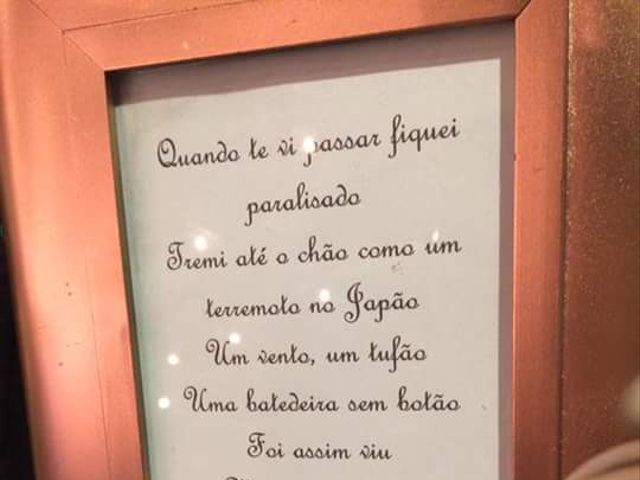 Quando te vi passar fiquei
paralisado
Tremi até o chão como um
terremoto no Japão
Um vento, um tufão
Uma batedeira sem botão
Foi assim viu